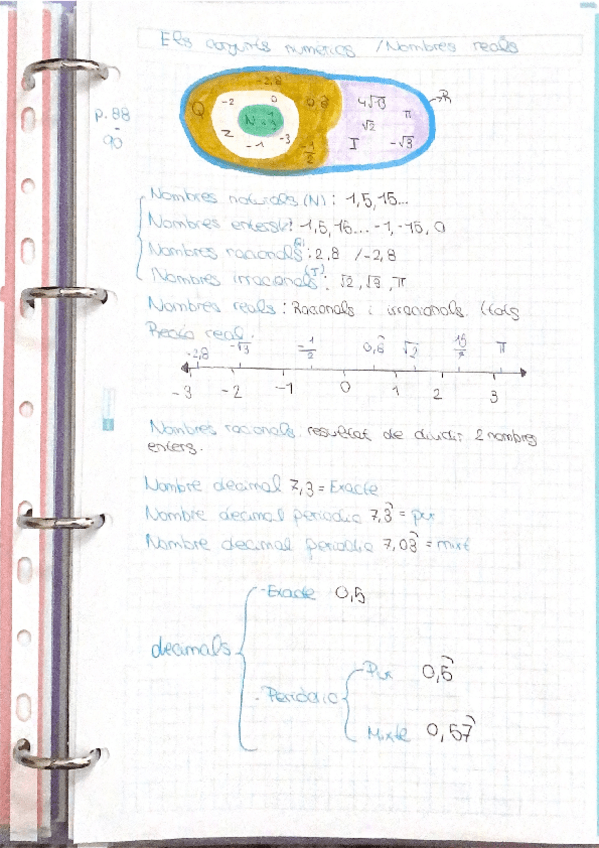 Els conjunts numèrics / Nombres reals
p. 88
-
90
-2,8
Q -2 0 0,8 4√13 π R
N √2
Z -1 -3 -1/2 I -√3
Nombres naturals (N): 1,5,15...
Nombres enters: 1,5,15... -1,-15,0
Nombres racionals: 2,8 / -2,8
Nombres irracionals (I): √2, √3, π
Nombres reals: Racionals i irracionals (tots
Recta real:
-2,8 -√3 -1/2 0,6̂ √2 15/2 π
-3 -2 -1 0 1 2 3
Nombres racionals: resultat de dividir 2 nombres
enters.
Nombre decimal 7,3 = Exacte
Nombre decimal periòdic 7,3̂ = pur
Nombre decimal periòdic 7,03̂ = mixt
-Exacte 0,5
decimals
-Pur 0,5̂
-Periòdic
Mixte 0,57̂